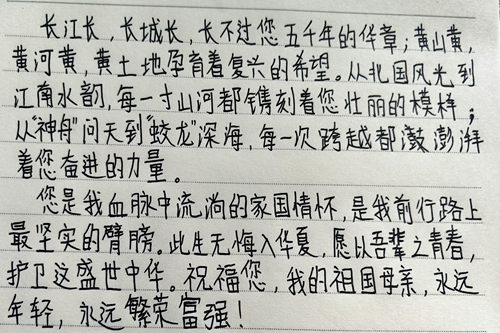 长江长，长城长，长不过您五千年的华章；黄山黄，
黄河黄，黄土地孕育着复兴的希望。从北国风光到
江南水韵，每一寸山河都镌刻着您壮丽的模样；
从“神舟”问天到“蛟龙”深海，每一次跨越都激澎湃
着您奋进的力量。
您是我血脉中流淌的家国情怀，是我前行路上
最坚实的臂膀。此生无悔入华夏，愿以吾辈之青春，
护卫这盛世中华。祝福您，我的祖国母亲，永远
年轻，永远繁荣富强！